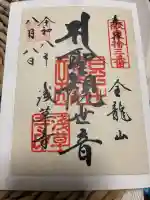 奉拝
坂東拾三番
金龍山
聖観世音
浅草寺
令和八年
八月八日